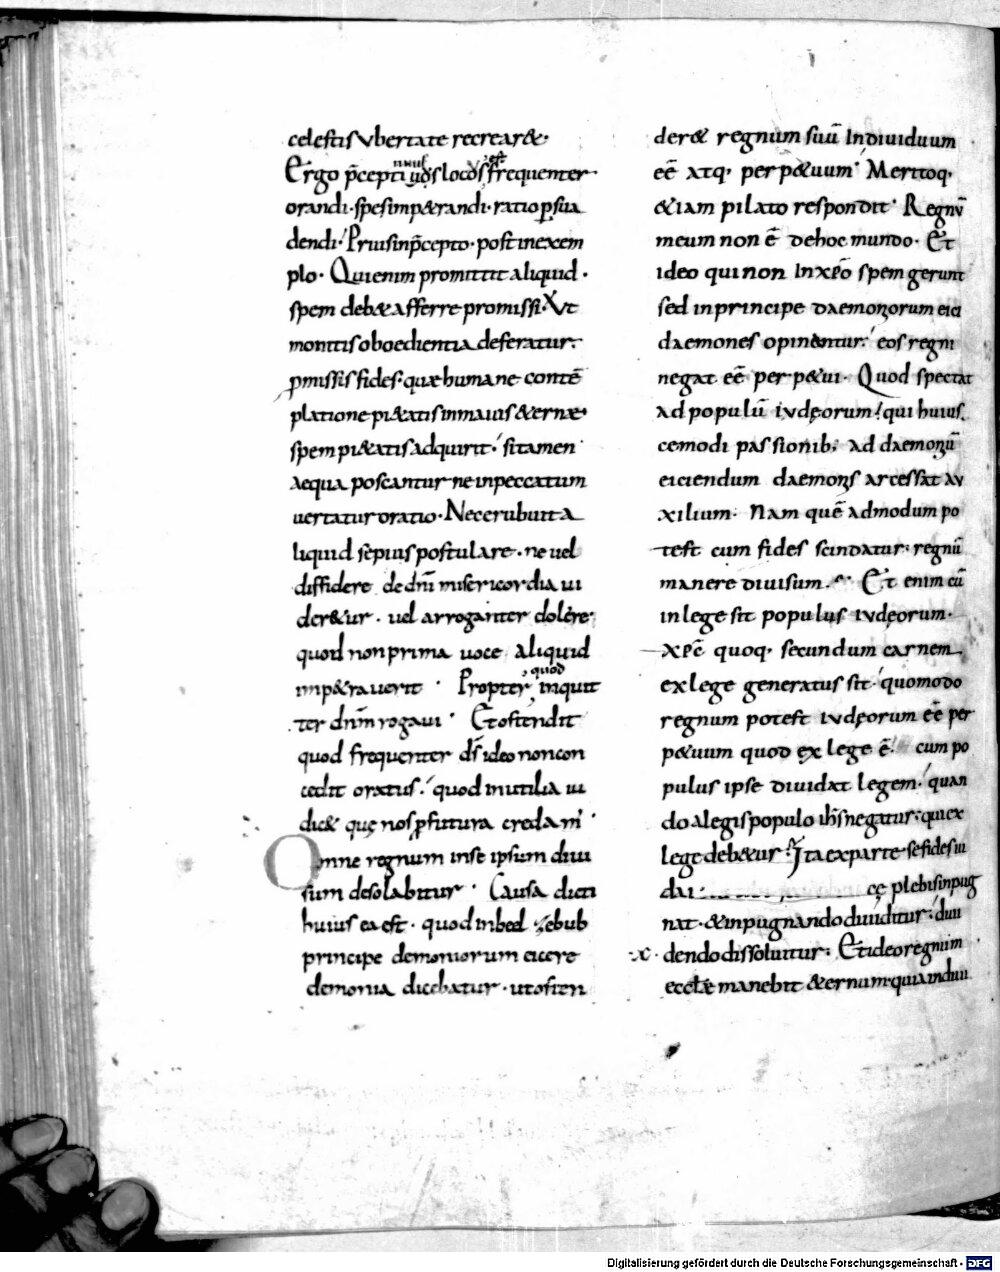 celestis vbertate recreare&·
Ergo p̄cepti unius locus est frequenter
orandi·spes imp&randi·ratio p̱sua
dendi·Prius in p̄cepto·post in exem
plo· Qui enim promittit aliquid·
spem deb& afferre promissi·Vt
monitis oboedientia deferatur·
p̱missis fides·quae humane contē
platione pi&atis immanis &ernae·
spem pi&atis adquirit·si tamen
aequa poscantur ne in peccatum
uertatur oratio·Nec erubuit a
liquid sepius postulare·ne uel
diffidere de dnī misericordia ui
der&ur·uel arroganter dolere·
quod non prima uoce aliquid
imp&rauerit· Propter quod inquit
ter dnm̄ rogaui· Et ostendit
quod frequenter ds̄ ideo non con
cedit oratus·quod inutilia iu
dic& quę nos p̱futura credam̄·
Omne regnum in se ipsum diui
sum desolabitur· Causa dicti
huius ea est·quod in beelzebub
principe demoniorum eicere
demonia dicebatur·ut osten
der& regnum suū Indiuiduum
eē atq· perp&uum· Meritoq·
&iam pilato respondit· Regnū
meum non ē de hoc mundo· Et
ideo qui non In xp̄o spem gerunt
sed in principe daemoniorum eici
daemones opinantur·eos regni
negat eē perp&ui· Quod spectat
ad populū iudęorum·qui huius
cemodi passionib; ad daemonū
eiciendum daemones arcessat au
xilium· Nam quē admodum po
test cum fides scindatur·regnū
manere diuisum· Et enim cū
in lege sit populus iudęorum·
xpc̄ quoq· secundum carnem
ex lege generatus sit·quomodo
regnum potest iudęorum eē per
p&uum quod ex lege ē· cum po
pulus ipse diuidat legem·quan
do a legis populo ihs̄ negatur·qui ex
lege deb&ur· Ita ex parte se fides iu
dai cę plebis inpug
nat·&inpugnando diuiditur·diui
dendo dissoluitur· Et ideo regnum
eccłę manebit &ernum·quia indiui